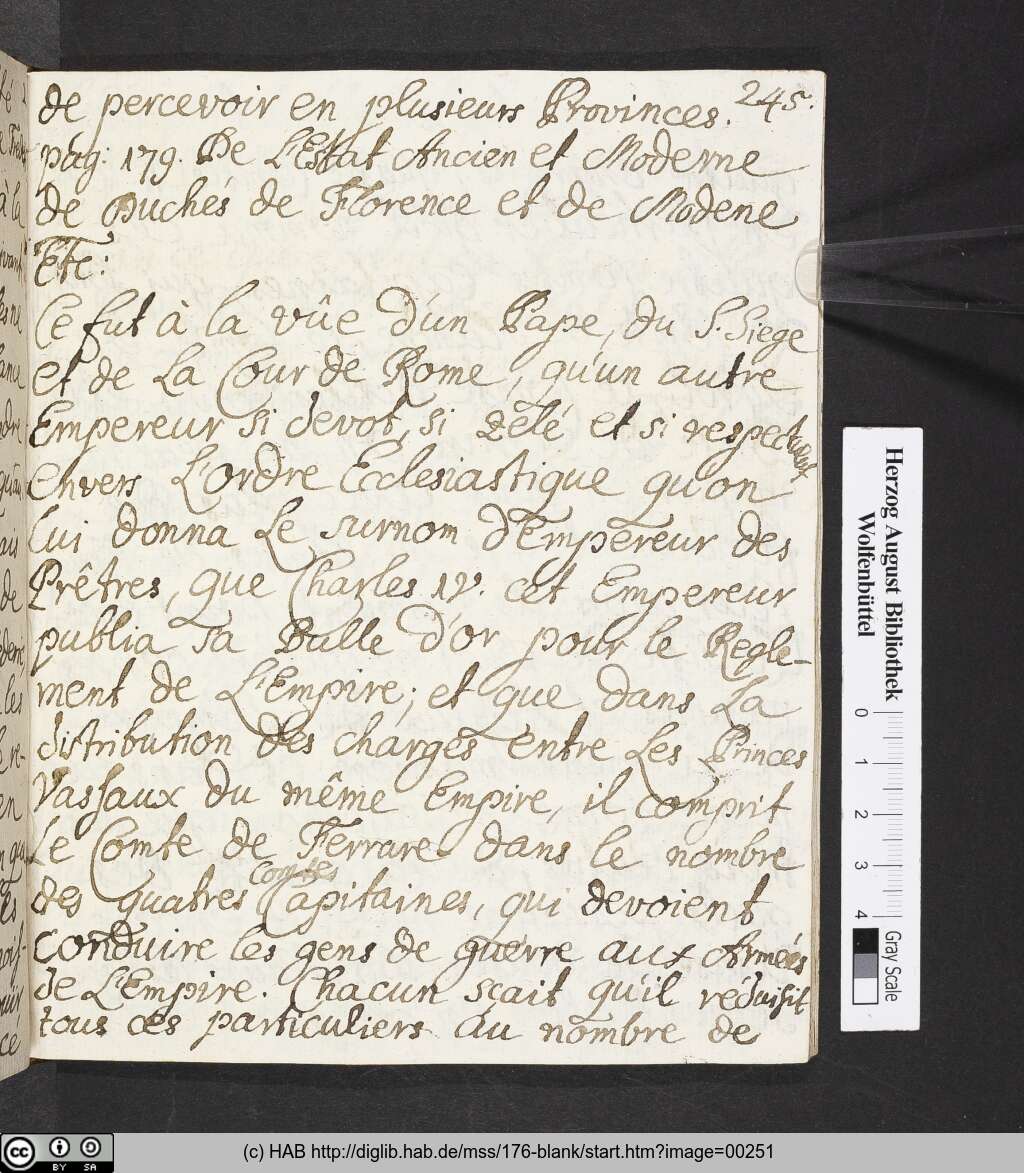 245.
de percevoir en plusieurs Provinces.
pag: 179. De L'Estat Ancien et Moderne
de Duchés de Florence et de Modene
Etc:
Ce fut à la vûe d'un Pape, du S. Siege
et de La Cour de Rome, qu'un autre
Empereur si devot, si zélé et si respectueux
Envers L'ordre Ecclesiastique qu'on
lui donna Le surnom d'Empereur des
Prêtres, que Charles IV. cet Empereur
publia sa Bulle d'or pour le Regle-
ment de L'Empire; et que dans La
distribution des charges entre Les Princes
Vassaux du même Empire, il comprit
Le Comte de Ferrare dans le nombre
Comtes
des quatres Capitaines, qui devoient
conduire les gens de guerre aux Armées
de L'Empire. Chacun sçait qu'il réduisit
tous ces particuliers au nombre de
Herzog August Bibliothek
Wolfenbüttel
0 1 2 3 4
Gray Scale
cc BY SA
(c) HAB http://diglib.hab.de/mss/176-blank/start.htm?image=00251